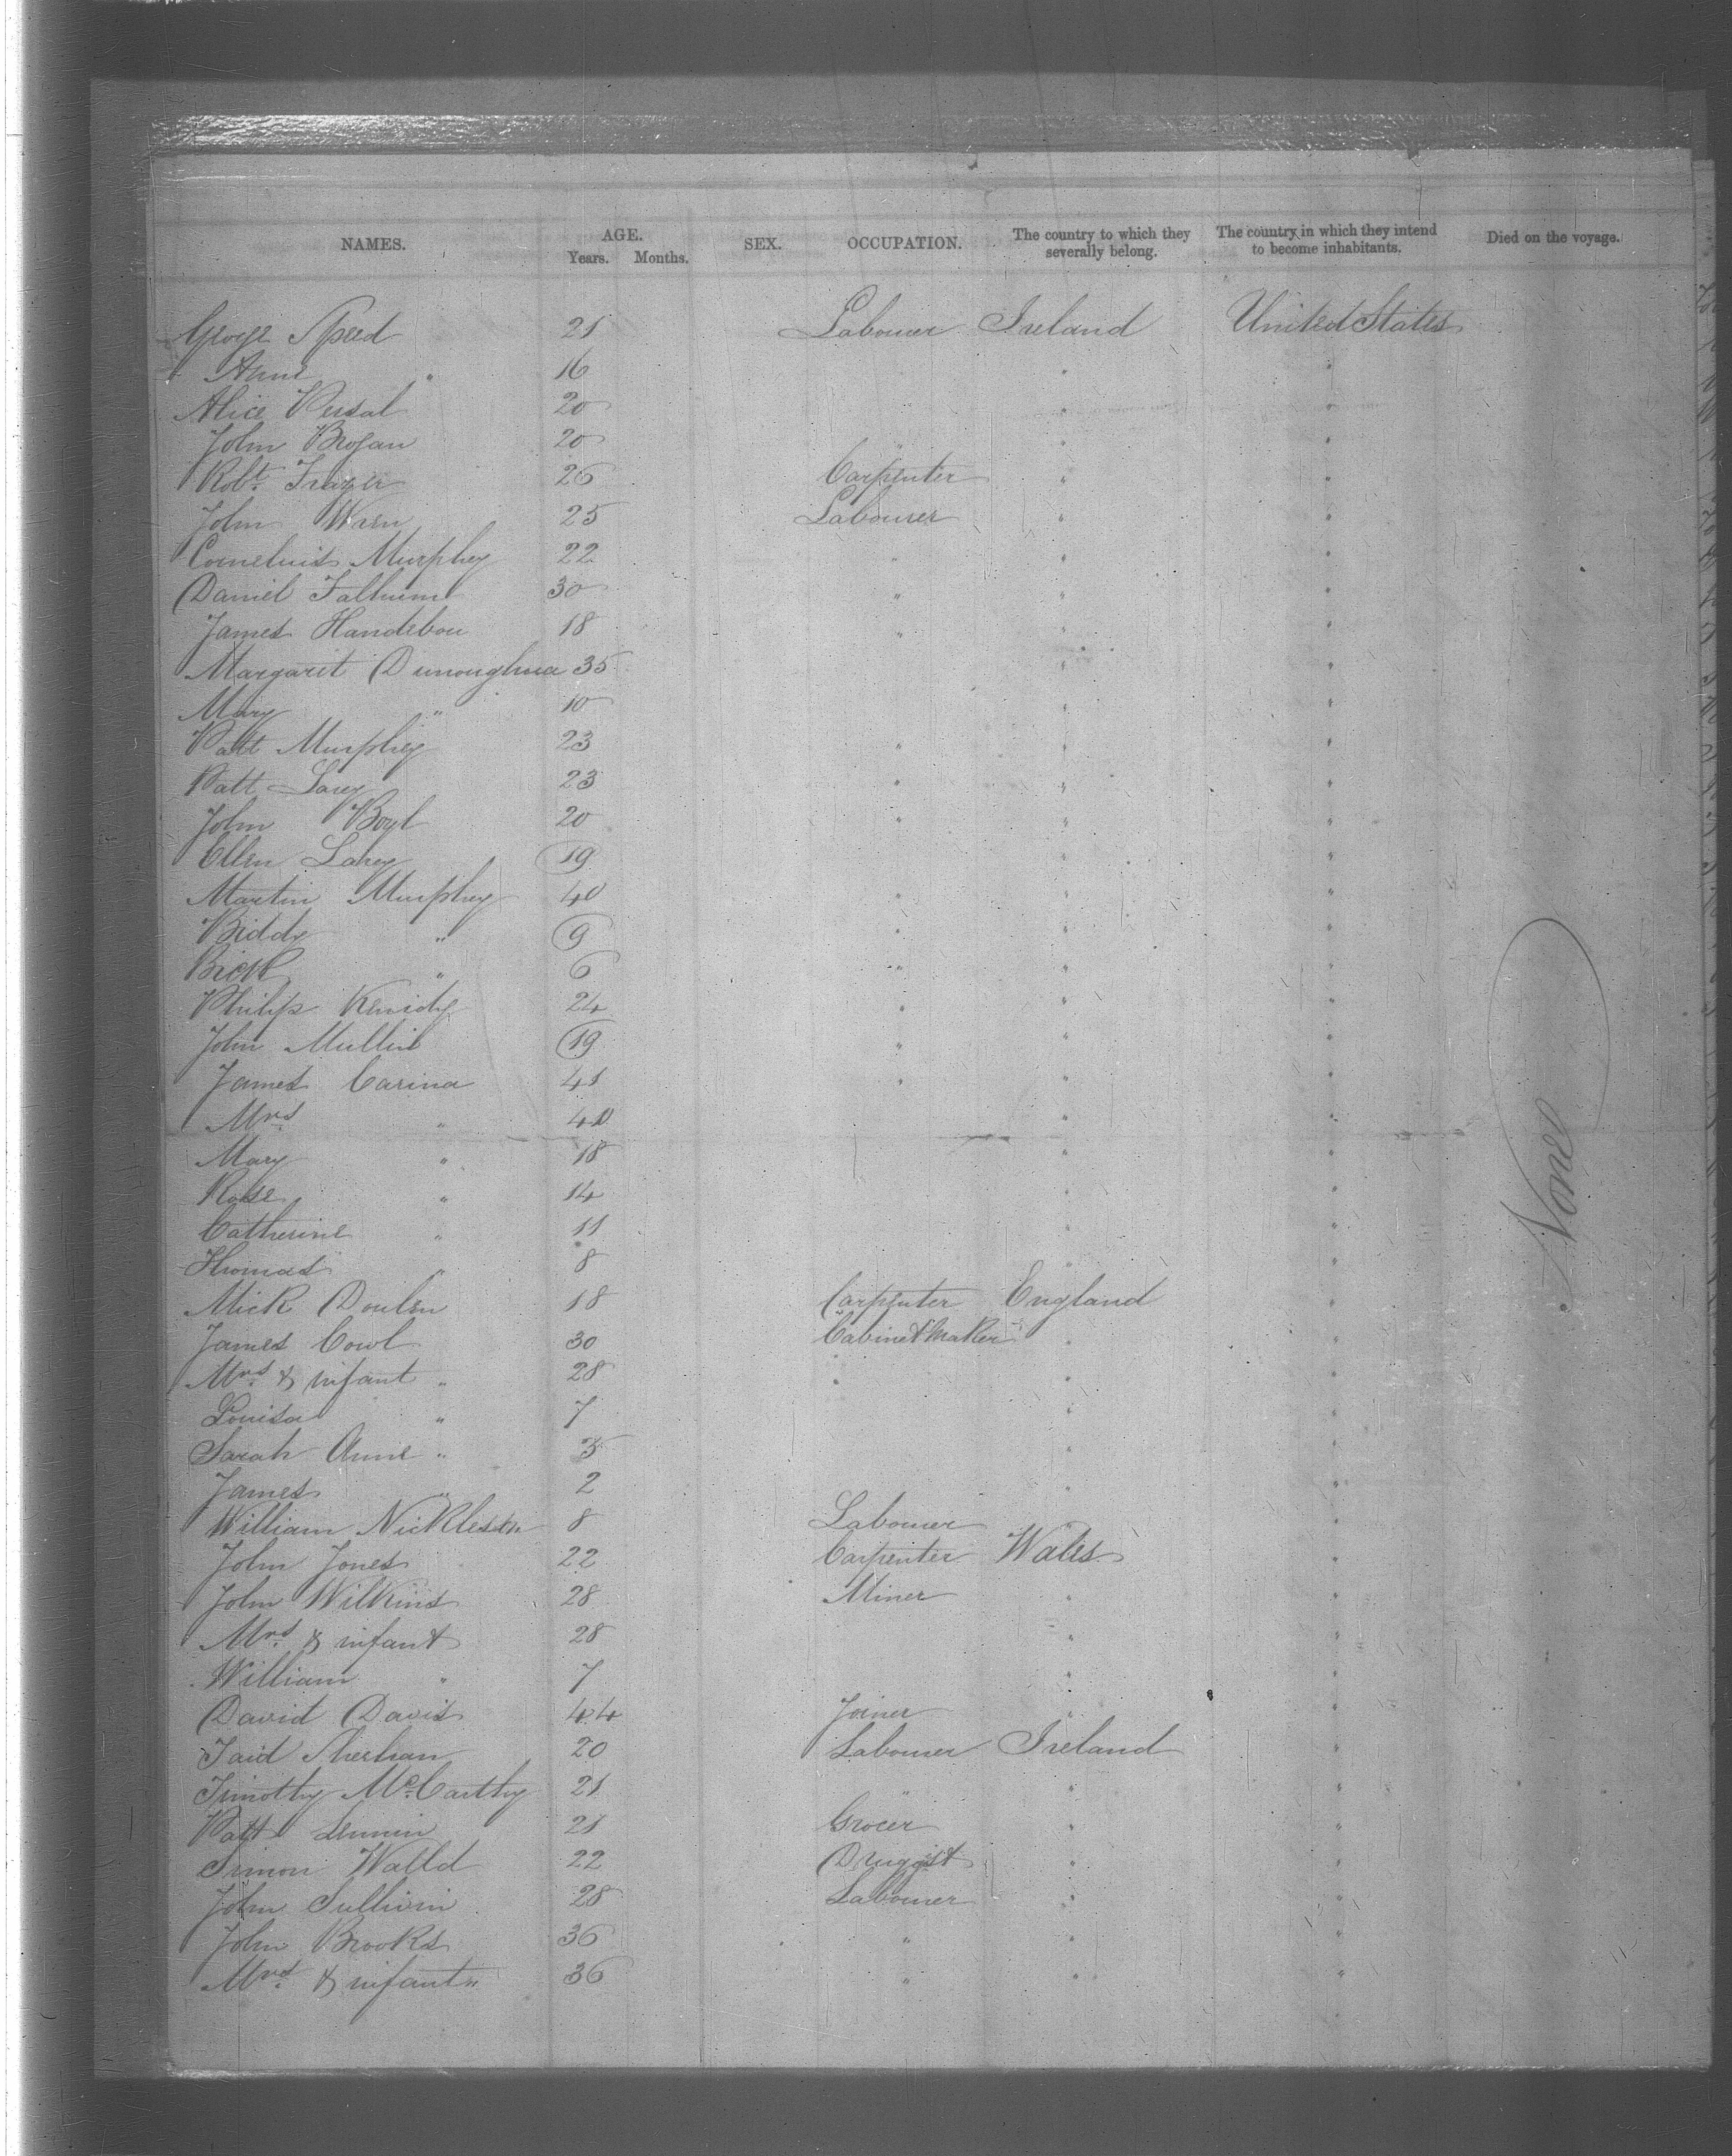 NAMES. AGE. Years. Months. SEX. OCCUPATION. The country to which they severally belong. The country in which they intend to become inhabitants. Died on the voyage.
George Speed 21 Labourer Ireland United States
Anne " 16 " "
Alice 20 " "
John Brogan 20 " " "
Robt. Frazer 26 Carpenter " "
John Wren 25 Labourer " "
Cornelius Murphy 22 " " "
Daniel 30 " " "
James 18 " " "
Margaret 35 " "
Mary " 10 " "
Patt Murphy 23 " " "
Patt 23 " " "
John Boyl 20 " " "
Ellen Lahey 19 " "
Martin Murphy 40 " " "
Biddy " 9 " " "
" 6 " " "
Philip Kenidy 24 " " "
John Mullin 19 " " "
James Carina 41 " " "
Mrs " 40 " "
Mary " 18 " "
Rose " 14 " "
Catherine " 11 " "
Thomas " 8 " "
Mick Doulen 18 Carpenter England "
James Cowl 30 Cabinet Maker " "
Mrs & infant " 28 " " "
Louisa " 7 " "
Sarah Anne " 3 " "
James " 2 " "
William Nickleson 8 Labourer " "
John Jones 22 Carpenter Wales "
John Wilkins 28 Miner " "
Mrs & infant 28 " "
William " 7 " "
David Davis 44 Joiner " "
20 Labourer Ireland "
Timothy McCarthy 21 " "
Patt Lennin 21 Grocer " "
Simon Walld 22 Drugist " "
John Sullivin 28 Labourer " "
John Brooks 36 " " "
Mrs & infant " 36 " " "
None